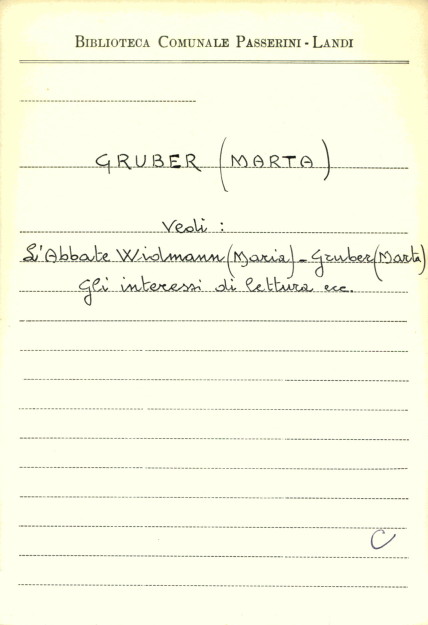 BIBLIOTECA COMUNALE PASSERINI - LANDI
GRUBER (MARTA)
Vedi :
L'Abbate Widmann (Maria) - Gruber (Marta)
Gli interessi di lettura ecc.
C